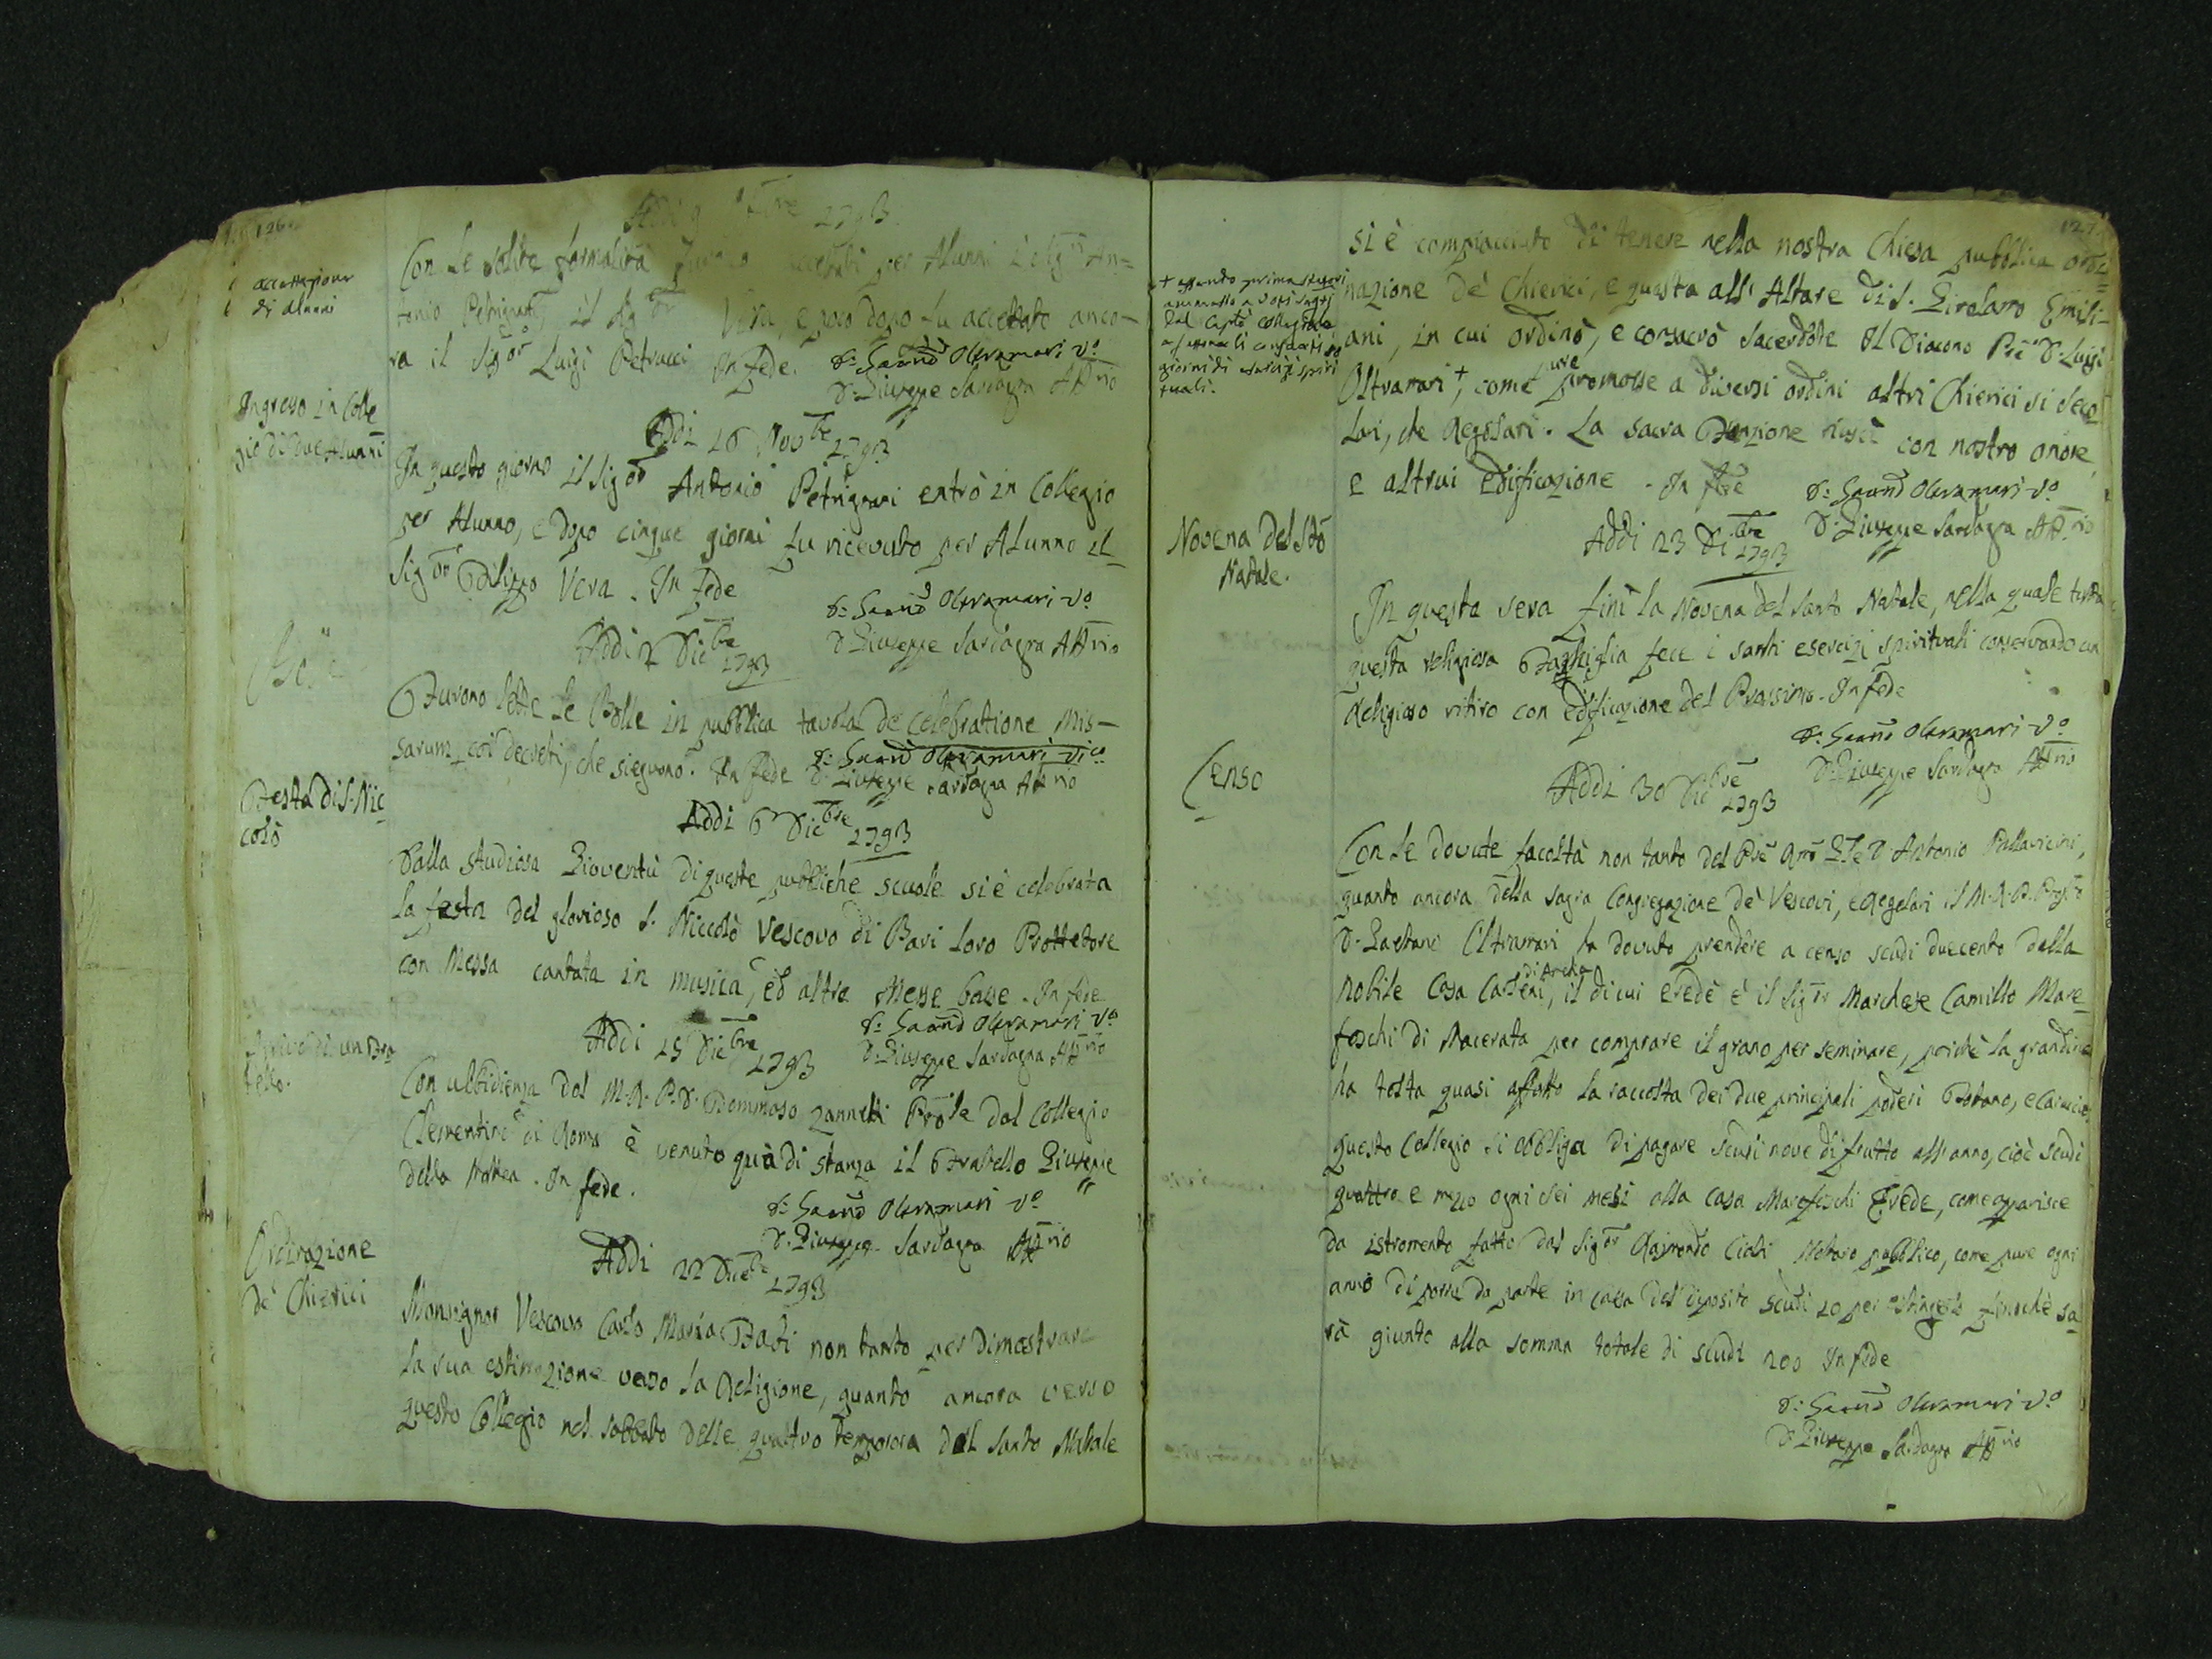 126
Addi 9 1793
accettazione
di alunni
Con le solite formalità accettati per Alunni il Sig.r An=
tonio Petrignani, il Sig.or Vera, e poco dopo fu accettato anco-
ra il Sig.or Luigi Petrucci. In fede. D. Gaetno Oltramari Vo
D. Giuseppe Sardagna Attrio
Addi 16 Novbre 1793
Ingresso in Colle
gio di due Alunni
In questo giorno il Sigor Antonio Petrignani entrò in Collegio
per Alunno, e dopo cinque giorni fu ricevuto per Alunno il
Sigor Filippo Vera. In fede
D. Gaetno Oltramari Vo
D. Giuseppe Sardagna Attrio
Addi 2 Dicbre 1793
Furono lette le Bolle in pubblica tavola de Celebratione Mis-
sarum coi decreti, che sieguono. In fede D. Gaetno Oltramari Vico
D. Giuseppe Sardagna Attrio
Addi 6 Dicbre 1793
Festa di S. Nic
colò
Dalla studiosa Gioventù di queste pubbliche scuole si è celebrata
la festa del glorioso S. Niccolò Vescovo di Bari loro Prottetore
con Messa cantata in musica, ed altre Messe basse. In fede
D. Gaetno Oltramari Vo
D. Giuseppe Sardagna Attrio
Addi 15 Dicbre 1793
Arrivo di un Fra
tello.
Con ubbidienza del M. R. P. D. Tommaso Zannetti Prole del Collegio
Clementino di Roma è venuto quà di stanza il Fratello Giuseppe
della Mattea. In fede.
D. Gaetno Oltramari Vo
D. Giuseppe Sardagna Attrio
Addi 22 Dicbre 1793
Ordinazione
de' Chierici
Monsignor Vescovo Carlo Maria Fabi non tanto per dimostrare
la sua estimazione verso la Religione, quanto ancora verso
questo Collegio nel sabbato delle quattro tempora del Santo Natale
127
si è compiacciuto di tenere nella nostra Chiesa pubblica ordi=
nazione de' Chierici, e questa all' Altare di S. Girolamo Emili-
ani, in cui ordinò, e consacrò sacerdote il Diacono Pre D. Luigi
Oltramari +, come pure promosse a diversi ordini altri Chierici si seco
lari, che Regolari. La sacra Funzione riuscì con nostro onore,
e altrui edificazione. In fede
D. Gaetno Oltramari Vo
D. Giuseppe Sardagna Attrio
+ essendo prima stato
ammesso a voti
dal Capto Collegiale
giorni di esercizi spiri
tuali.
Addi 23 Dibre 1793
Novena del Sto
Natale.
In questa sera finì la Novena del Santo Natale, nella quale tutta
questa religiosa Famiglia fece i santi esercizi spirituali conservando un
Religioso ritiro con edificazione del Prossimo. In fede
D. Gaetno Oltramari Vo
D. Giuseppe Sardagna Attrio
Addi 30 Dicbre 1793
Censo
Con le dovute facoltà non tanto del Pre Gle D. Antonio Pallavicini,
quanto ancora della Sagra Congregazione de' Vescovi, e Regolari il M. R. P.
D. Gaetano Oltramari ha dovuto prendere a censo scudi duecento dalla
nobile Casa Carleni, il di cui erede è il Sigor Marchese Camillo Mare
foschi di Macerata per comprare il grano per seminare, poichè la grandine
ha tolta quasi affatto la raccolta dei due principali poderi
questo Collegio si obbliga di pagare scudi nove di frutto all' anno, cioè scudi
quattro e mezzo ogni sei mesi alla casa Marefoschi Erede, come apparisce
da istromento fatto dal Sigor Raimondo Ciali Notaro pubblico, come pure ogni
anno di porre da parte in cassa del diposito scudi 20 per estinguerlo finochè sa
rà giunto alla somma totale di scudi 200 In fede
D. Gaetno Oltramari Vo
D. Giuseppe Sardagna Attrio